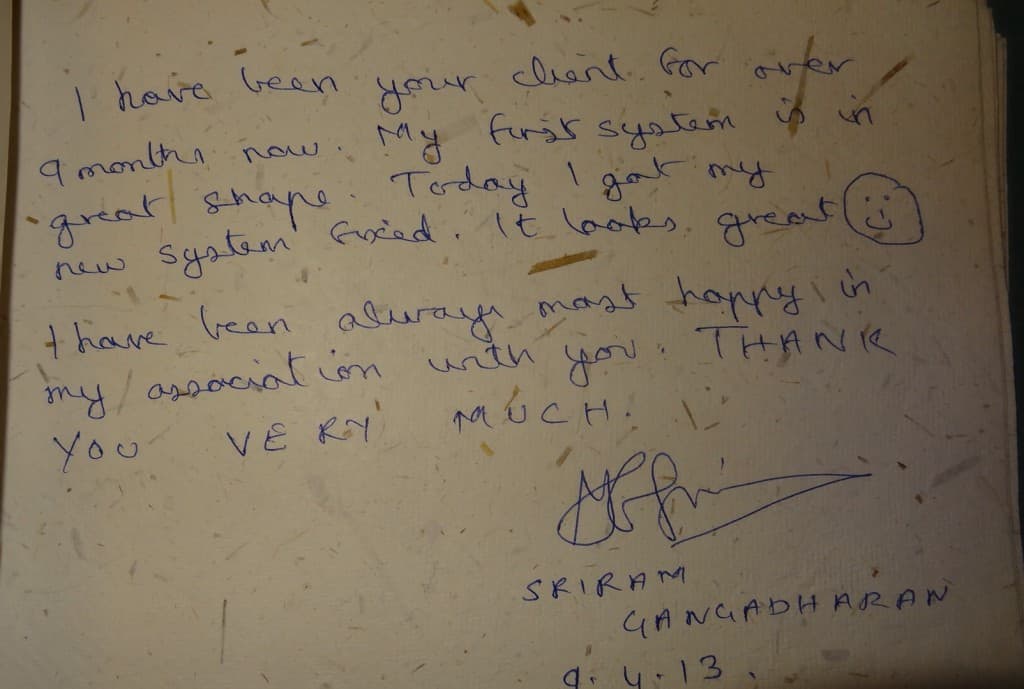 I have been your client for over
9 months now. My first system is in
great shape. Today I got my
new system fixed. It looks great
I have been always most happy in
my association with you. THANK
YOU VERY MUCH.
SRIRAM
GANGADHARAN
9.4.13.